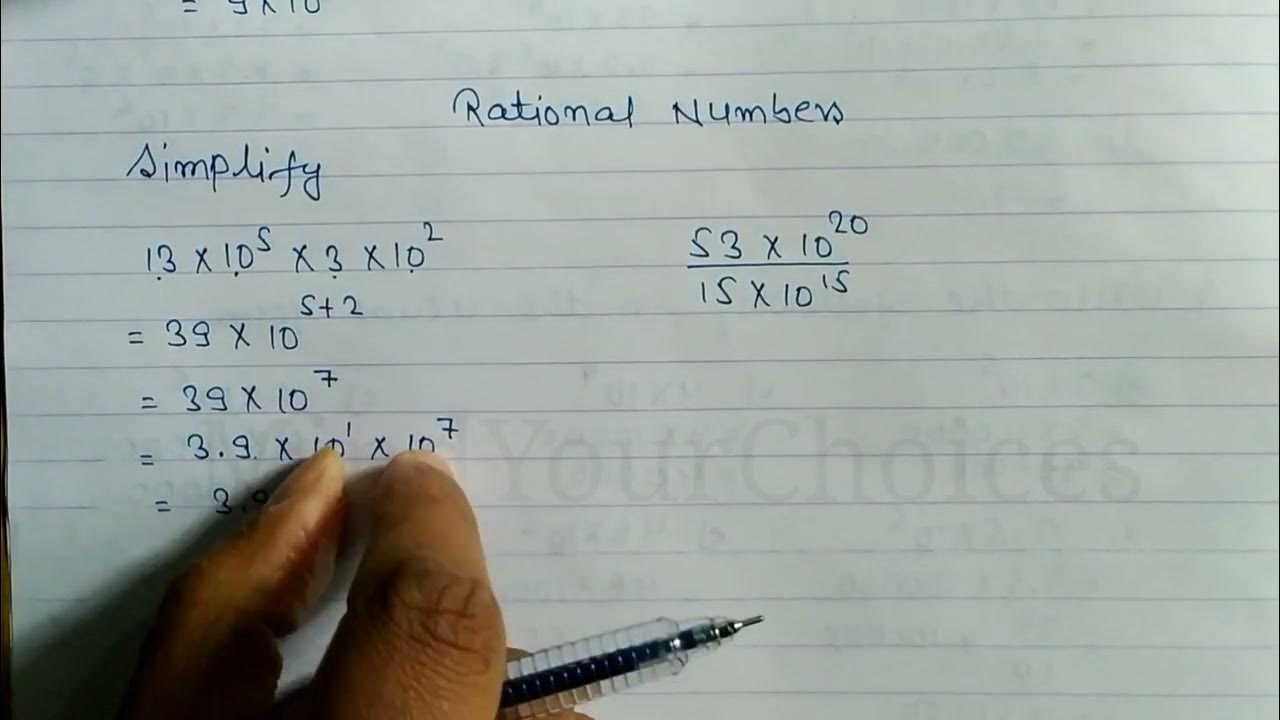 = 9 × 10
Rational Numbers
Simplify
13 × 10⁵ × 3 × 10²
= 39 × 10⁵⁺²
= 39 × 10⁷
= 3.9 × 10¹ × 10⁷
= 3.9
53 × 10²⁰
15 × 10¹⁵
YourChoices